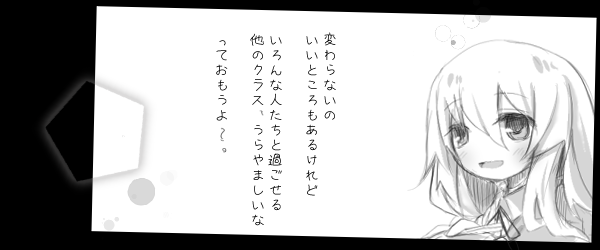 変わらないの
いいところもあるけれど
いろんな人たちと過ごせる
他のクラス、うらやましいな
っておもうよ～。